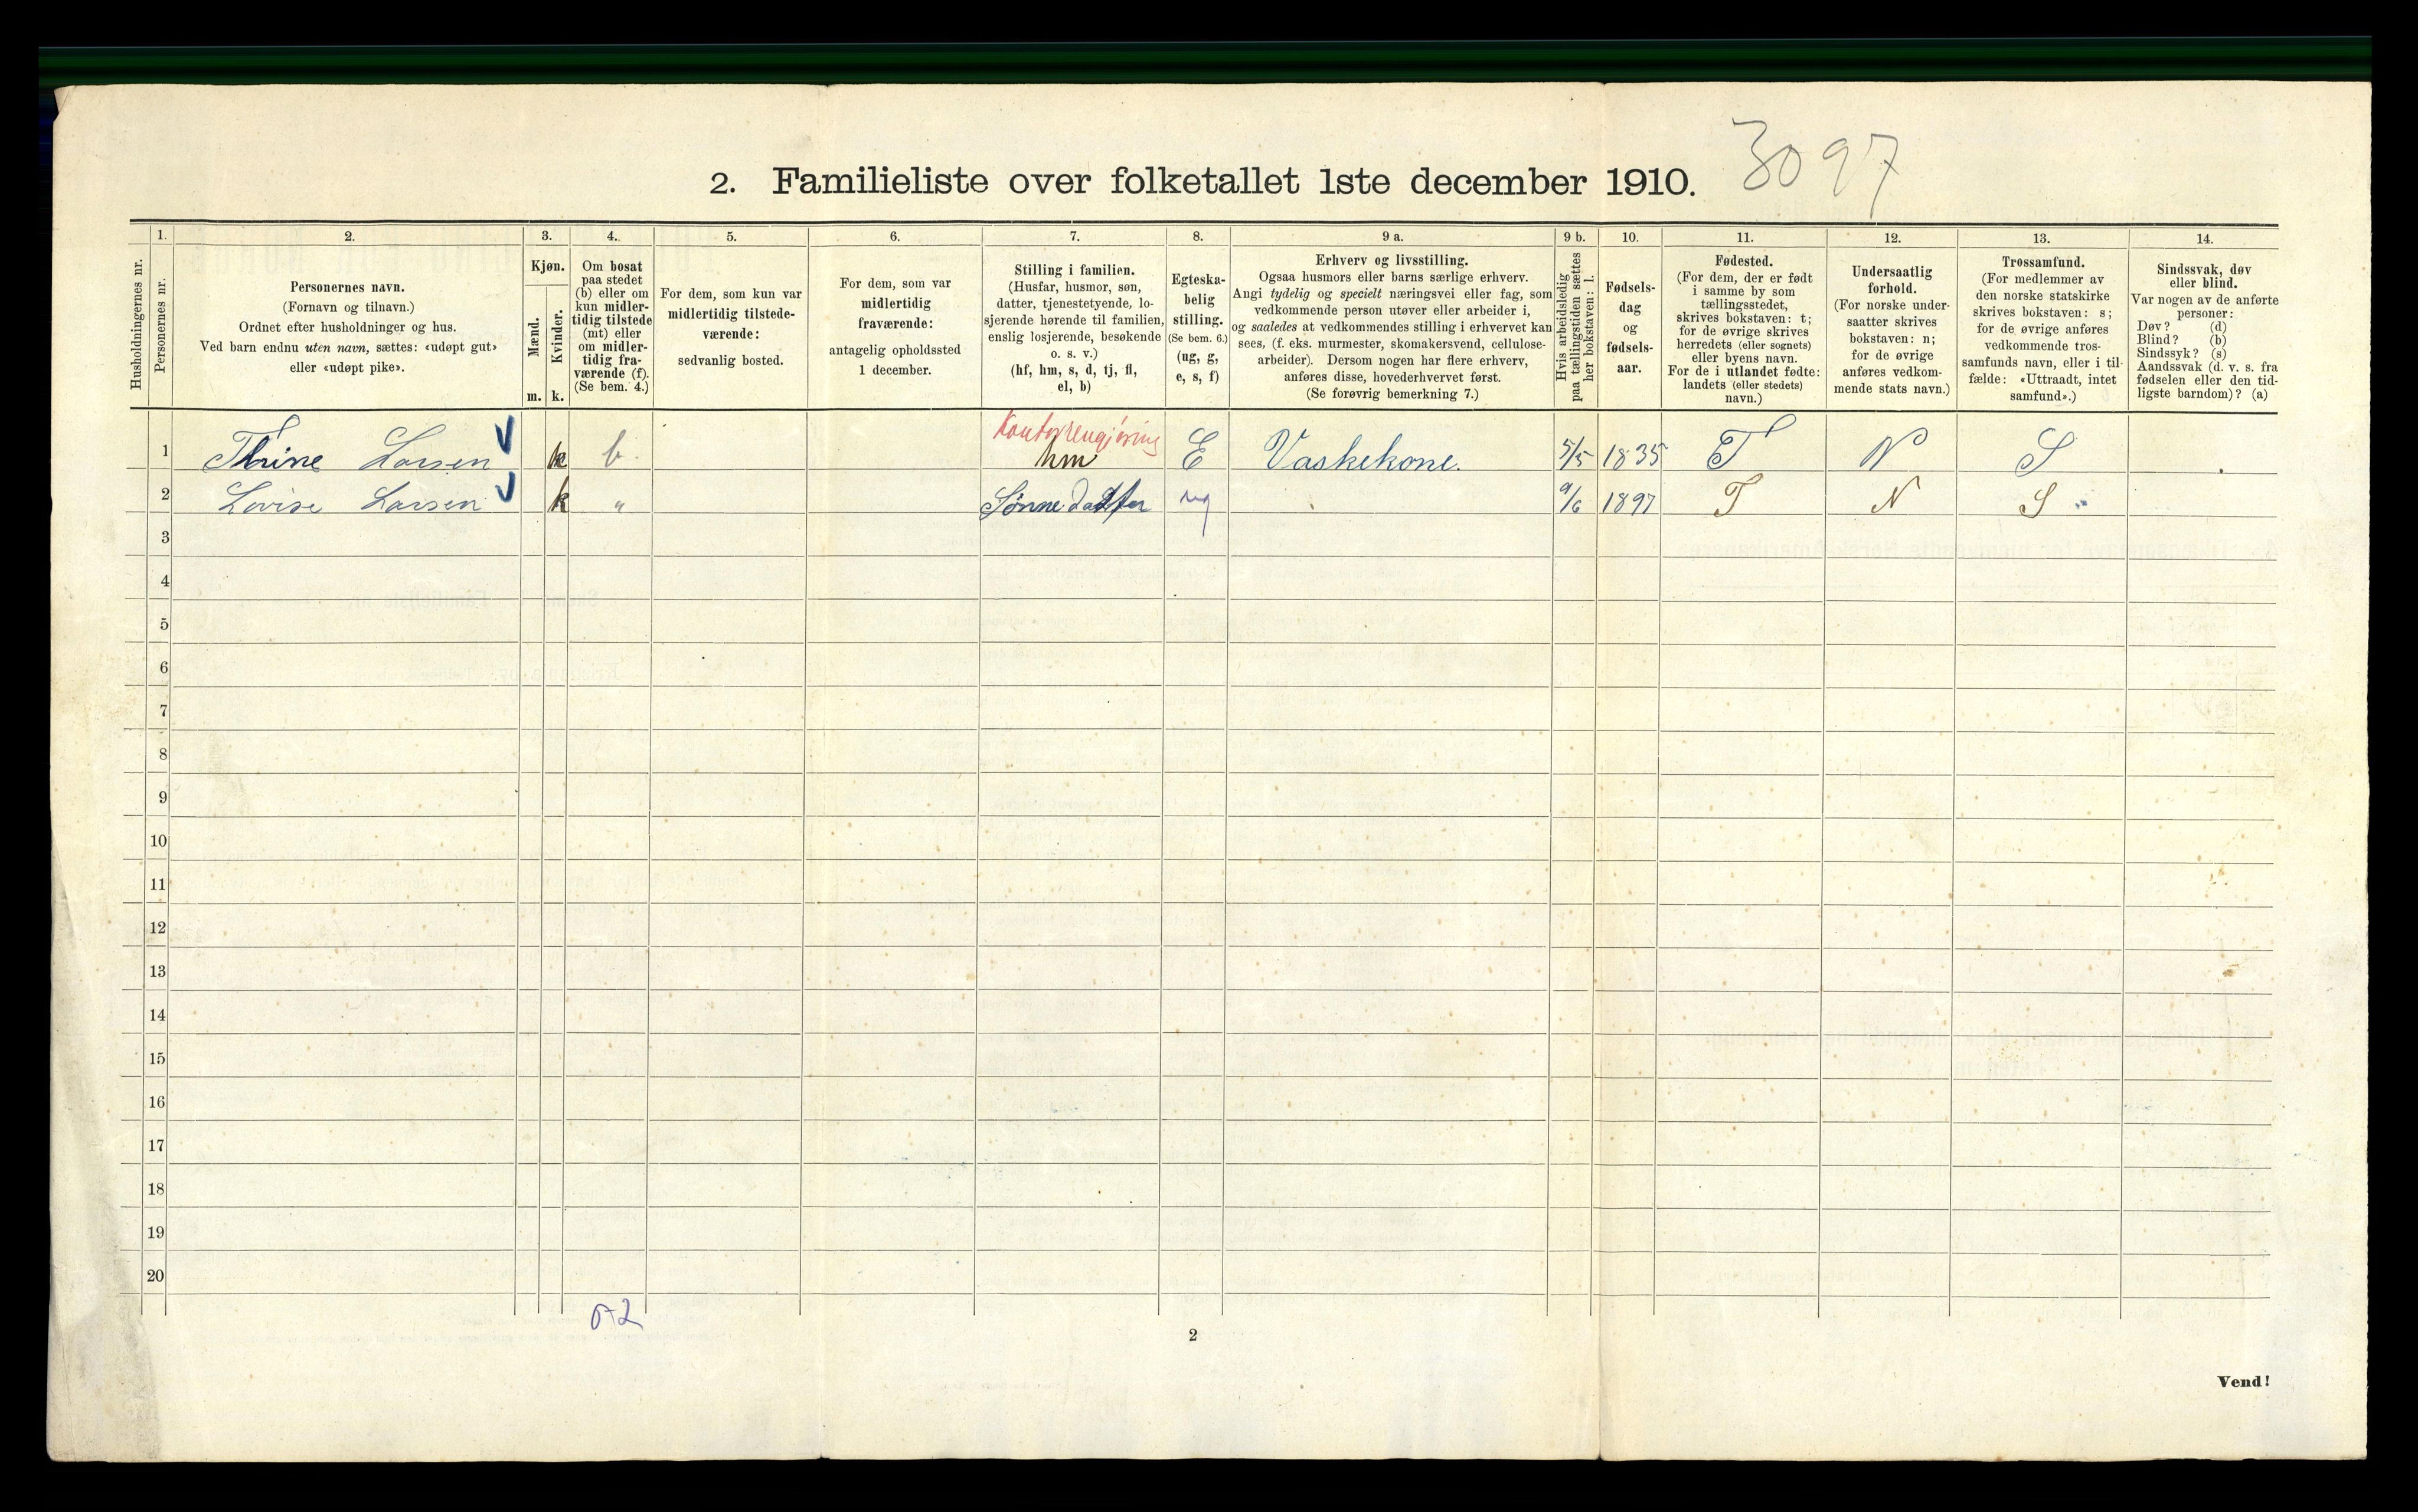 3097
2. Familieliste over folketallet 1ste december 1910.
Husholdningernes nr.
1.
Personernes nr.
2.
Personernes navn.
(Fornavn og tilnavn.)
Ordnet efter husholdninger og hus.
Ved barn endnu uten navn, sættes: «udøpt gut»
eller «udøpt pike».
3.
Kjøn.
Mænd.
Kvinder.
m. k.
4.
Om bosat
paa stedet
(b) eller om
kun midler-
tidig tilstede
(mt) eller
om midler-
tidig fra-
værende (f).
(Se bem. 4.)
5.
For dem, som kun var
midlertidig tilstede-
værende:
sedvanlig bosted.
6.
For dem, som var
midlertidig
fraværende:
antagelig opholdssted
1 december.
7.
Stilling i familien.
(Husfar, husmor, søn,
datter, tjenestetyende, lo-
sjerende hørende til familien,
enslig losjerende, besøkende
o. s. v.)
(hf, hm, s, d, tj, fl,
el, b)
8.
Egteska-
belig
stilling.
(Se bem. 6.)
(ug, g,
e, s, f)
9 a.
Erhverv og livsstilling.
Ogsaa husmors eller barns særlige erhverv.
Angi tydelig og specielt næringsvei eller fag, som
vedkommende person utøver eller arbeider i,
og saaledes at vedkommendes stilling i erhvervet kan
sees, (f. eks. murmester, skomakersvend, cellulose-
arbeider). Dersom nogen har flere erhverv,
anføres disse, hovederhvervet først.
(Se forøvrig bemerkning 7.)
9 b.
Hvis arbeidsledig
paa tællingstiden sættes
her bokstaven: l.
10.
Fødsels-
dag
og
fødsels-
aar.
11.
Fødested.
(For dem, der er født
i samme by som
tællingsstedet,
skrives bokstaven: t;
for de øvrige skrives
herredets (eller sognets)
eller byens navn.
For de i utlandet fødte:
landets (eller stedets)
navn.)
12.
Undersaatlig
forhold.
(For norske under-
saatter skrives
bokstaven: n;
for de øvrige
anføres vedkom-
mende stats navn.)
13.
Trossamfund.
(For medlemmer av
den norske statskirke
skrives bokstaven: s;
for de øvrige anføres
vedkommende tros-
samfunds navn, eller i til-
fælde: «Uttraadt, intet
samfund».)
14.
Sindssvak, døv
eller blind.
Var nogen av de anførte
personer:
Døv? (d)
Blind? (b)
Sindssyk? (s)
Aandssvak (d. v. s. fra
fødselen eller den tid-
ligste barndom)? (a)
Kontorrengjøring
1 Thrine Larsen k b. hm E Vaskekone. 5/5 1835 T N S
2 Lovise Larsen k " Sønne datter ug 9/6 1897 T N S
3
4
5
6
7
8
9
10
11
12
13
14
15
16
17
18
19
20
0-2
2
Vend!